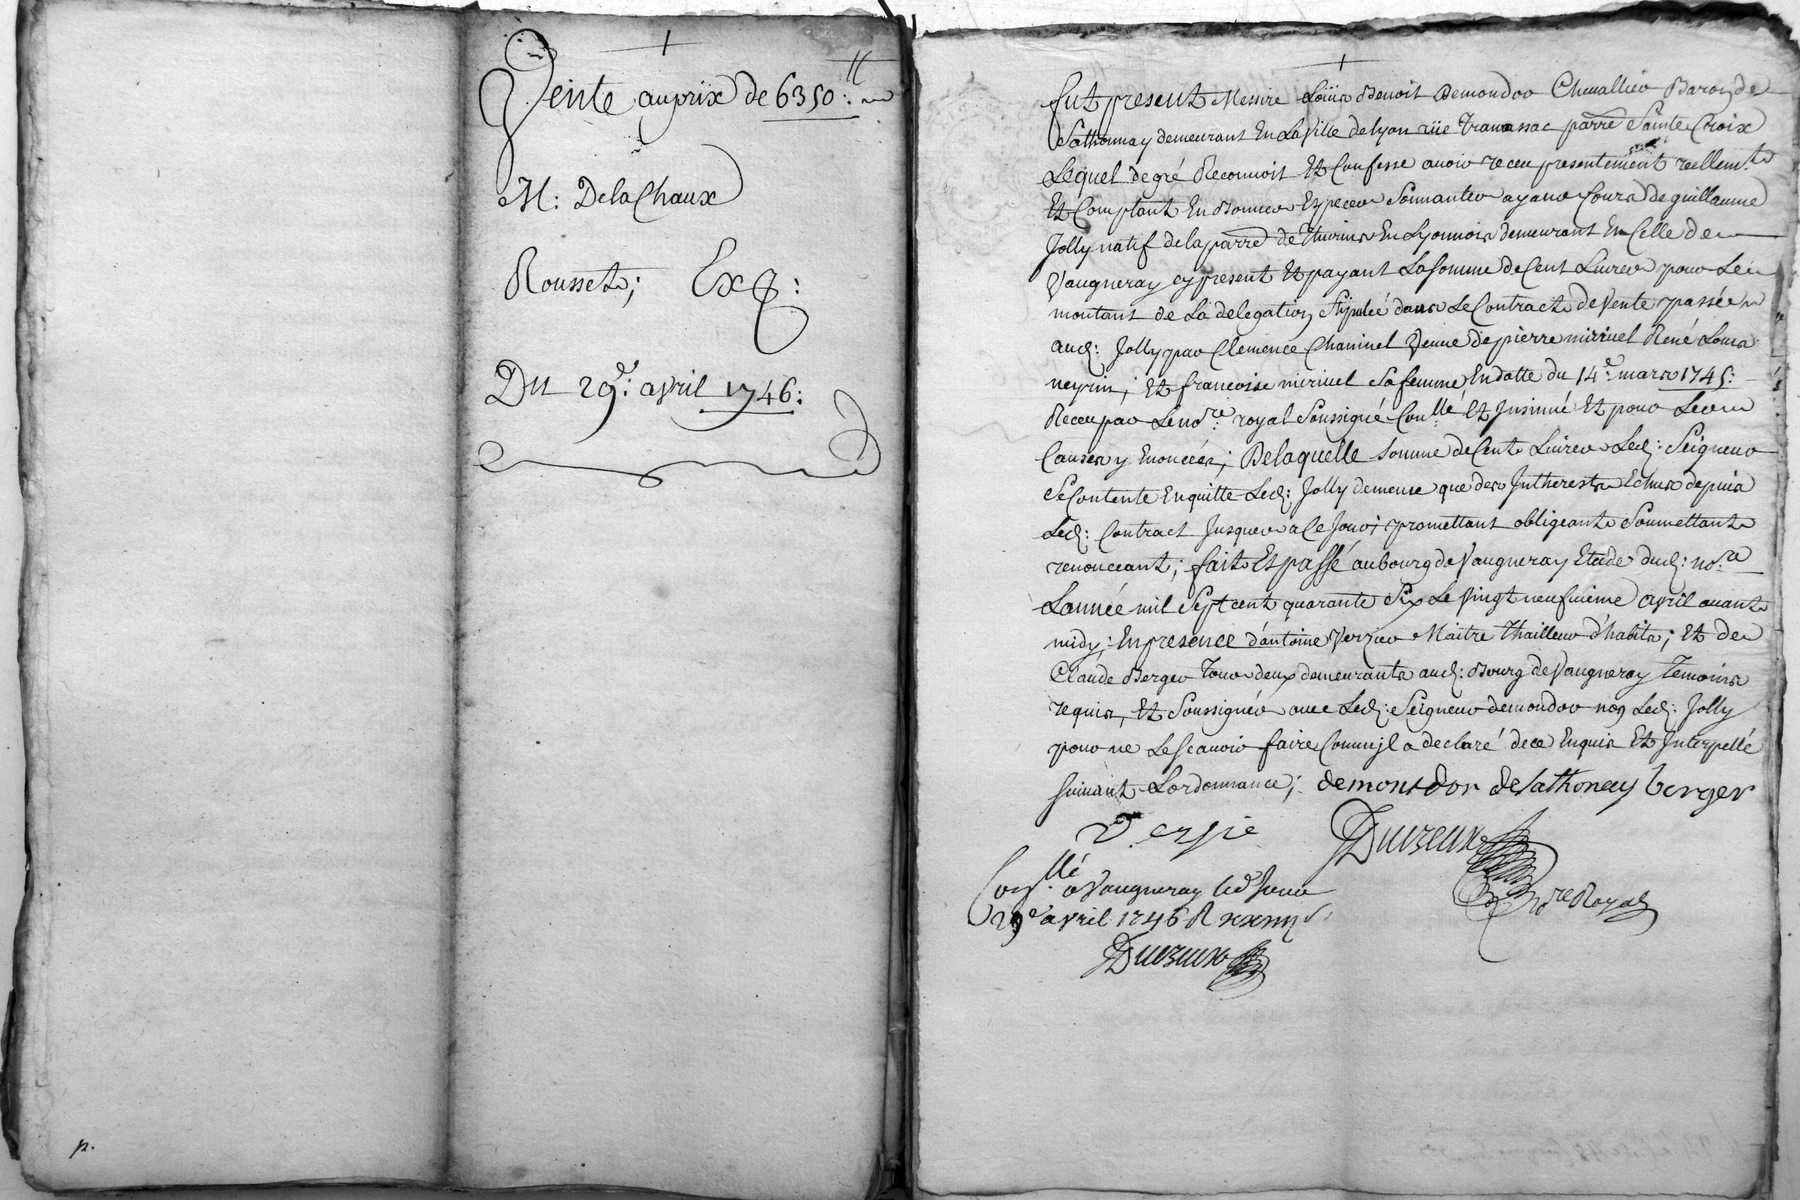 Vente au prix de 6350 : ll
M : Delachaux
Rousset ; Exp :
Du 29e : avril 1746 :
p.
fut present Messire Loüis Benoit Demondor Chevallier Baron de
Sathonnay demeurant En La Ville de lyon rüe Tramassac parre Sainte Croix
Lequel de gré Reconnoit Et Confesse avoir receu presentement reellemt
Et Comptant En Bonnes Especes Sonnantes ayant Cours de guillaume
Jolly natif de la parre de Thurins En Lyonnois demeurant En Celle de
Vaugneray cy present Et payant La Somme de Cent Livres pour Le
montant de La delegation Stipulée dans Le Contract de Vente passée
aud : Jolly par Clemence Chaninel Veuve de pierre miriuel René Louis
neyrin ; Et francoise miriuel Sa femme En datte du 14e : mars 1745 :
Receu par Le nore royal Soussigné Conllé Et Insinué Et pour Les
Causes y Enoncées ; De laquelle Somme de Cent Livres Led : Seigneur
Se Contente En quitte Led : Jolly de meme que des Interests Echus depuis
Led : Contract Jusques a Ce Jour ; promettant obligeant Soumettant
renonceant ; fait Et passé au bourg de Vaugneray Etude dud : nore
Lannée mil Sept cent quarante Six Le Vingt neufvieme avril avant
midy ; En presence d'antoine Verzier Maitre Thailleur d'habits ; Et de
Claude Berger Tous deux demeurants aud : Bourg de Vaugneray Temoins
requis, Et Soussignés avec Led : Seigneur demondor non Led : Jolly
pour ne Le Scavoir faire Comme jl a declaré de ce Enquis Et Interpellé
Suivant Lordonnance ; demontdor de Sathonay berger
Verzie Duvzeux
nore Royal
Conllé a Vaugneray led Jour
29e avril 1746 R
Duvzeux